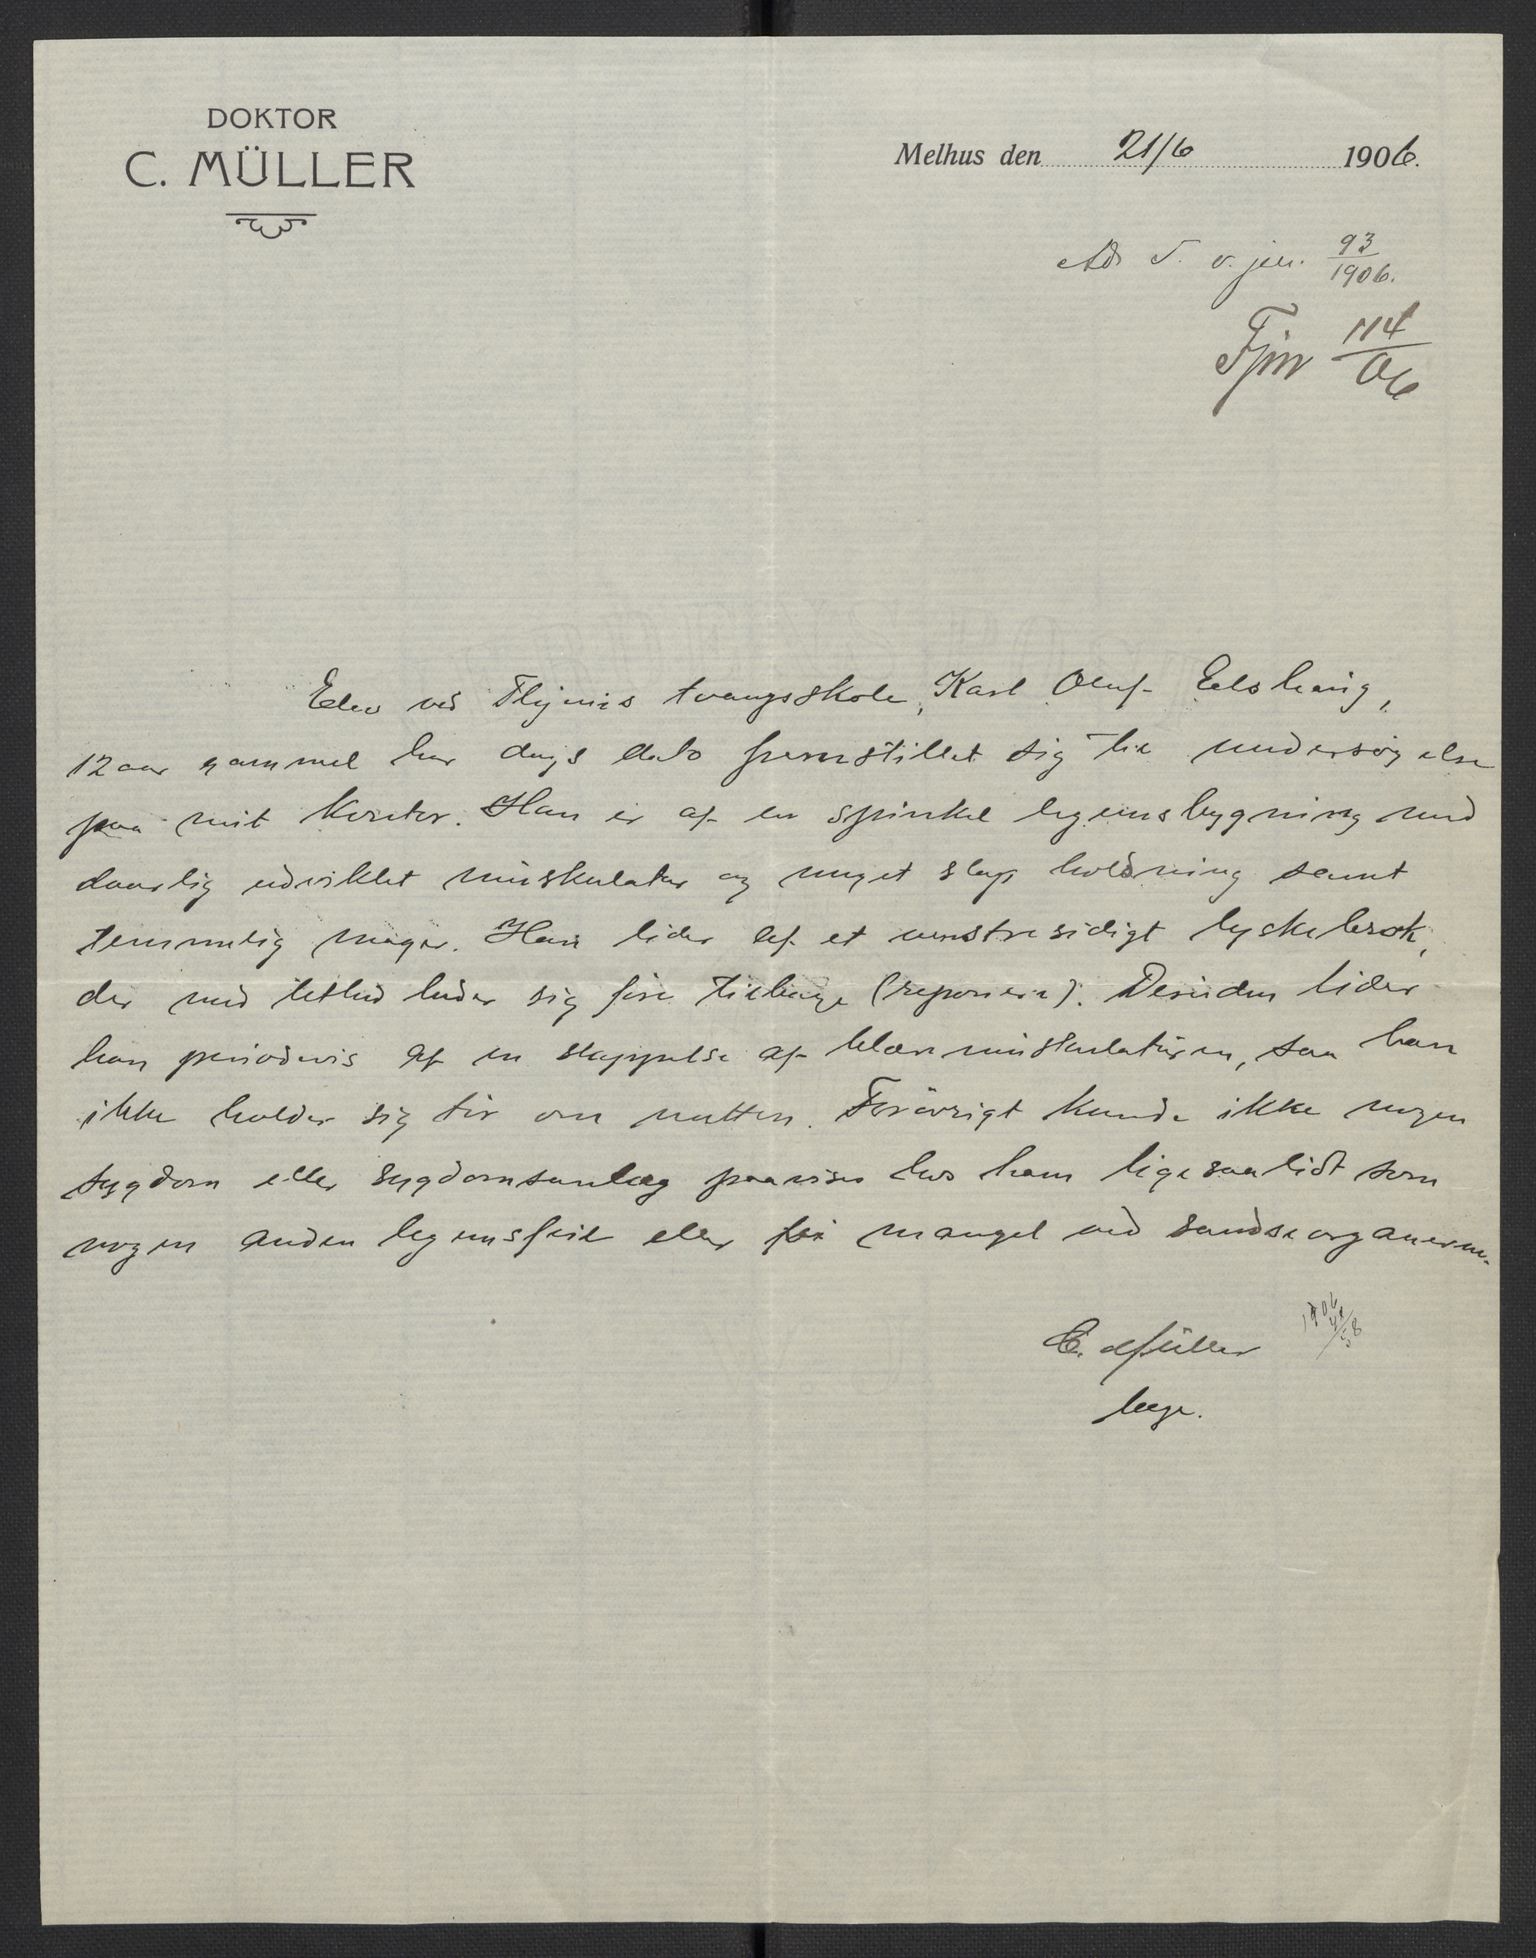 DOKTOR
C. MÜLLER
Melhus den 21/6 1906.
v. jnr. 93/1906.
Fjnr 114/06
Elev ved Thynæs tvangsskole, Karl Oluf
12 aar gammel har dags dato fremstillet sig til undersøgelse
paa mit kontor. Han er af en spinkel legemsbygning med
daarlig udviklet muskulatur og meget slap holdning samt
temmelig mager. Han lider af et venstresidigt lyskebrok,
der med lethed lader sig føre tilbage (reponere). Desuden lider
han periodevis af en slappelse af blæremuskulaturen, saa han
ikke holder sig tør om natten. Forøvrigt kunde ikke nogen
sygdom eller sygdomsanlæg paavises hos ham ligesaalidt som
nogen anden legemsfeil eller mangel ved sandseorganerne.
C. Müller
læge.